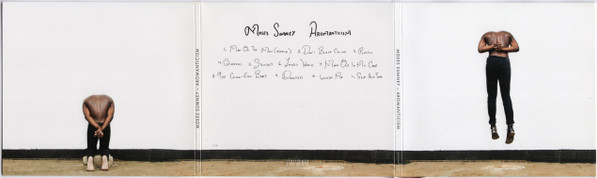 MOSES SUMNEY – AROMANTICISM
Moses Sumney Aromanticism
1. Man On The Moon (Reprise) 2. Don't Bother Calling 3. Plastic
4. Quarrel 5. Stoicism 6. Lonely World 7. Make Out In My Car
8. The Cocoon-Eyed Baby 9. Doomed 10. Indulge Me 11. Self-Help Tape
MOSES SUMNEY – AROMANTICISM